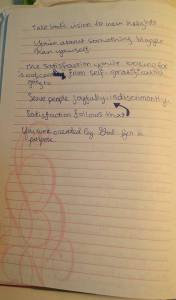 Take God's vision to new heights
You're about something bigger
than yourself
The satisfaction you're looking for
is not from self-gratification
Serve people joyfully, indiscriminantly
Satisfaction follows that
You were created by God for a
purpose.